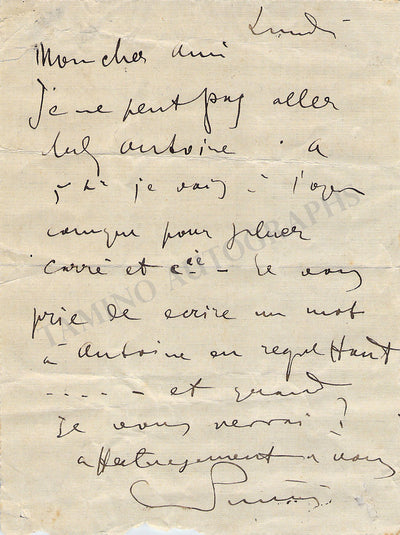 Lundi
Mon cher ami
Je ne peut pas aller
chez Antoine . a
5 h je vais à l'opera
comique pour
Carré et cie - Je vous
prie de ecrire un mot
à Antoine en
. . . . - et quand
je vous verrai ?
affectuesement a vous
TAMINO AUTOGRAPHS